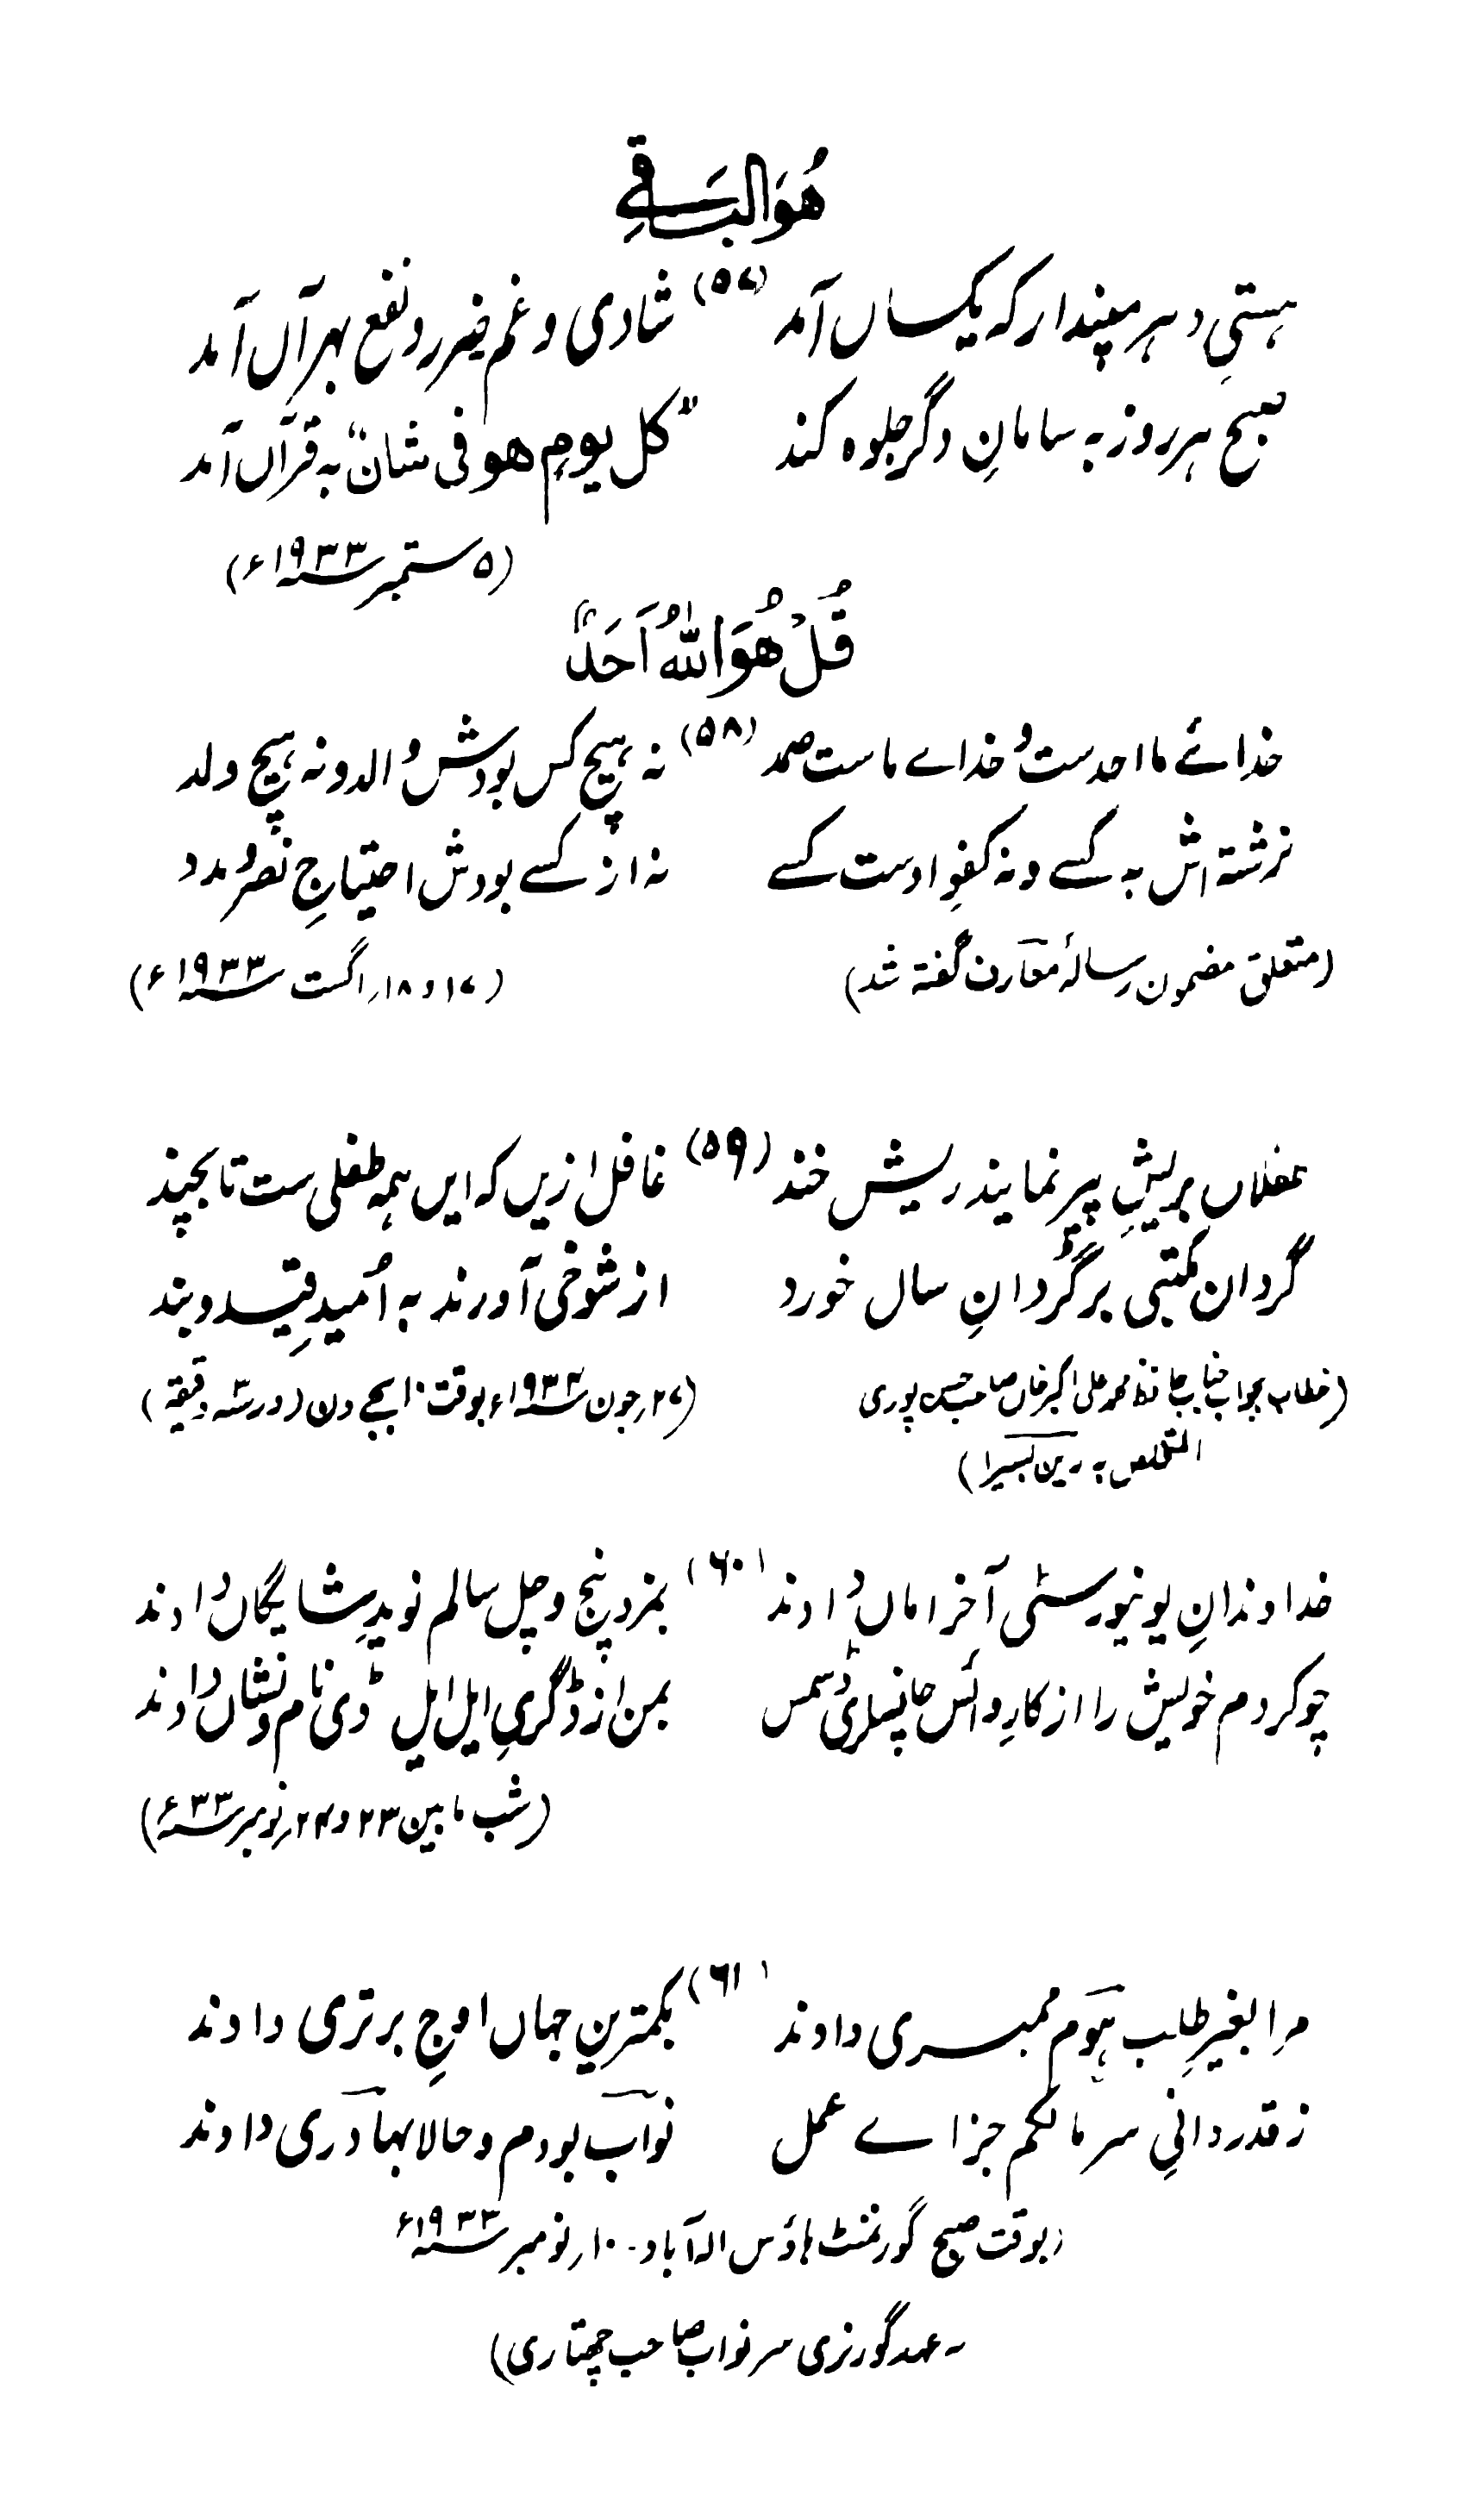 هُوَ البَاقی
ہستی دہر مپندار کہ یکساں آمد (۵۷) شادی و غم ضرر و نفع بہر آں آمد
صبح ہر روز بہ سامانِ دگر جلوہ کند "کل یومٍ ھو فی شان" بہ قرآں آمد
(۵ ستمبر ۱۹۳۳ء)
قُلْ هُوَ اللّٰهُ اَحَدٌ
خدائے ما احدست و خداے ماست صمد (۵۸) نہ ہیچ کس بودش والد و نہ ہیچ ولد
نہ رشتہ اش بہ کسے و نہ کفوِ اوست کسے نہ از کسے بودش احتیاجِ نصر و مدد
(متعلق مضمون رسالہ معارف گفتہ شد) (۱۷ و ۱۸ اگست ۱۹۳۳ء)
طفلاں بریشِ پیر نمایند ریش خند (۵۹) غافل ازیں کہ ایں ہمہ طفلی ست تا بچند
گردان مکتبی بر گردانِ سال خورد از شوخی آورند بہ اُمیدِ قید و بند
(خطاب بجواب جناب حافظ مولوی اکبر خاں صاحب حسین پوری (۲۷ جون ۱۹۳۳ء بوقت ۱۰ بجے دن (در سہ دقیقہ)
المتخلص بہ
خداوندانِ یونیورسٹی آخر اماں دادند (۶۰) بنود و پنج و چل سالم نویدِ شایگاں دادند
چو کردم خویش را از کارِ وائس چانسلری مس بمن از ڈگریِ ایل ایل ڈی نام و نشاں دادند
(شب مابین ۲۳ و ۲۴ نومبر ۳۳ء)
مرا بغیرِ طلب ہوم ممبری دادند (۶۱) بکمترینِ جہاں اوجِ برتری دادند
ز قدردانیِ سر مالکم جزاے عمل نواب بودم و حالا بہادری دادند
(بوقت صبح گورنمنٹ ہاؤس الہ آباد۔ ۱۰ نومبر ۱۹۳۳ء
بہ عہد گورنری سر نواب صاحب چھتاری)